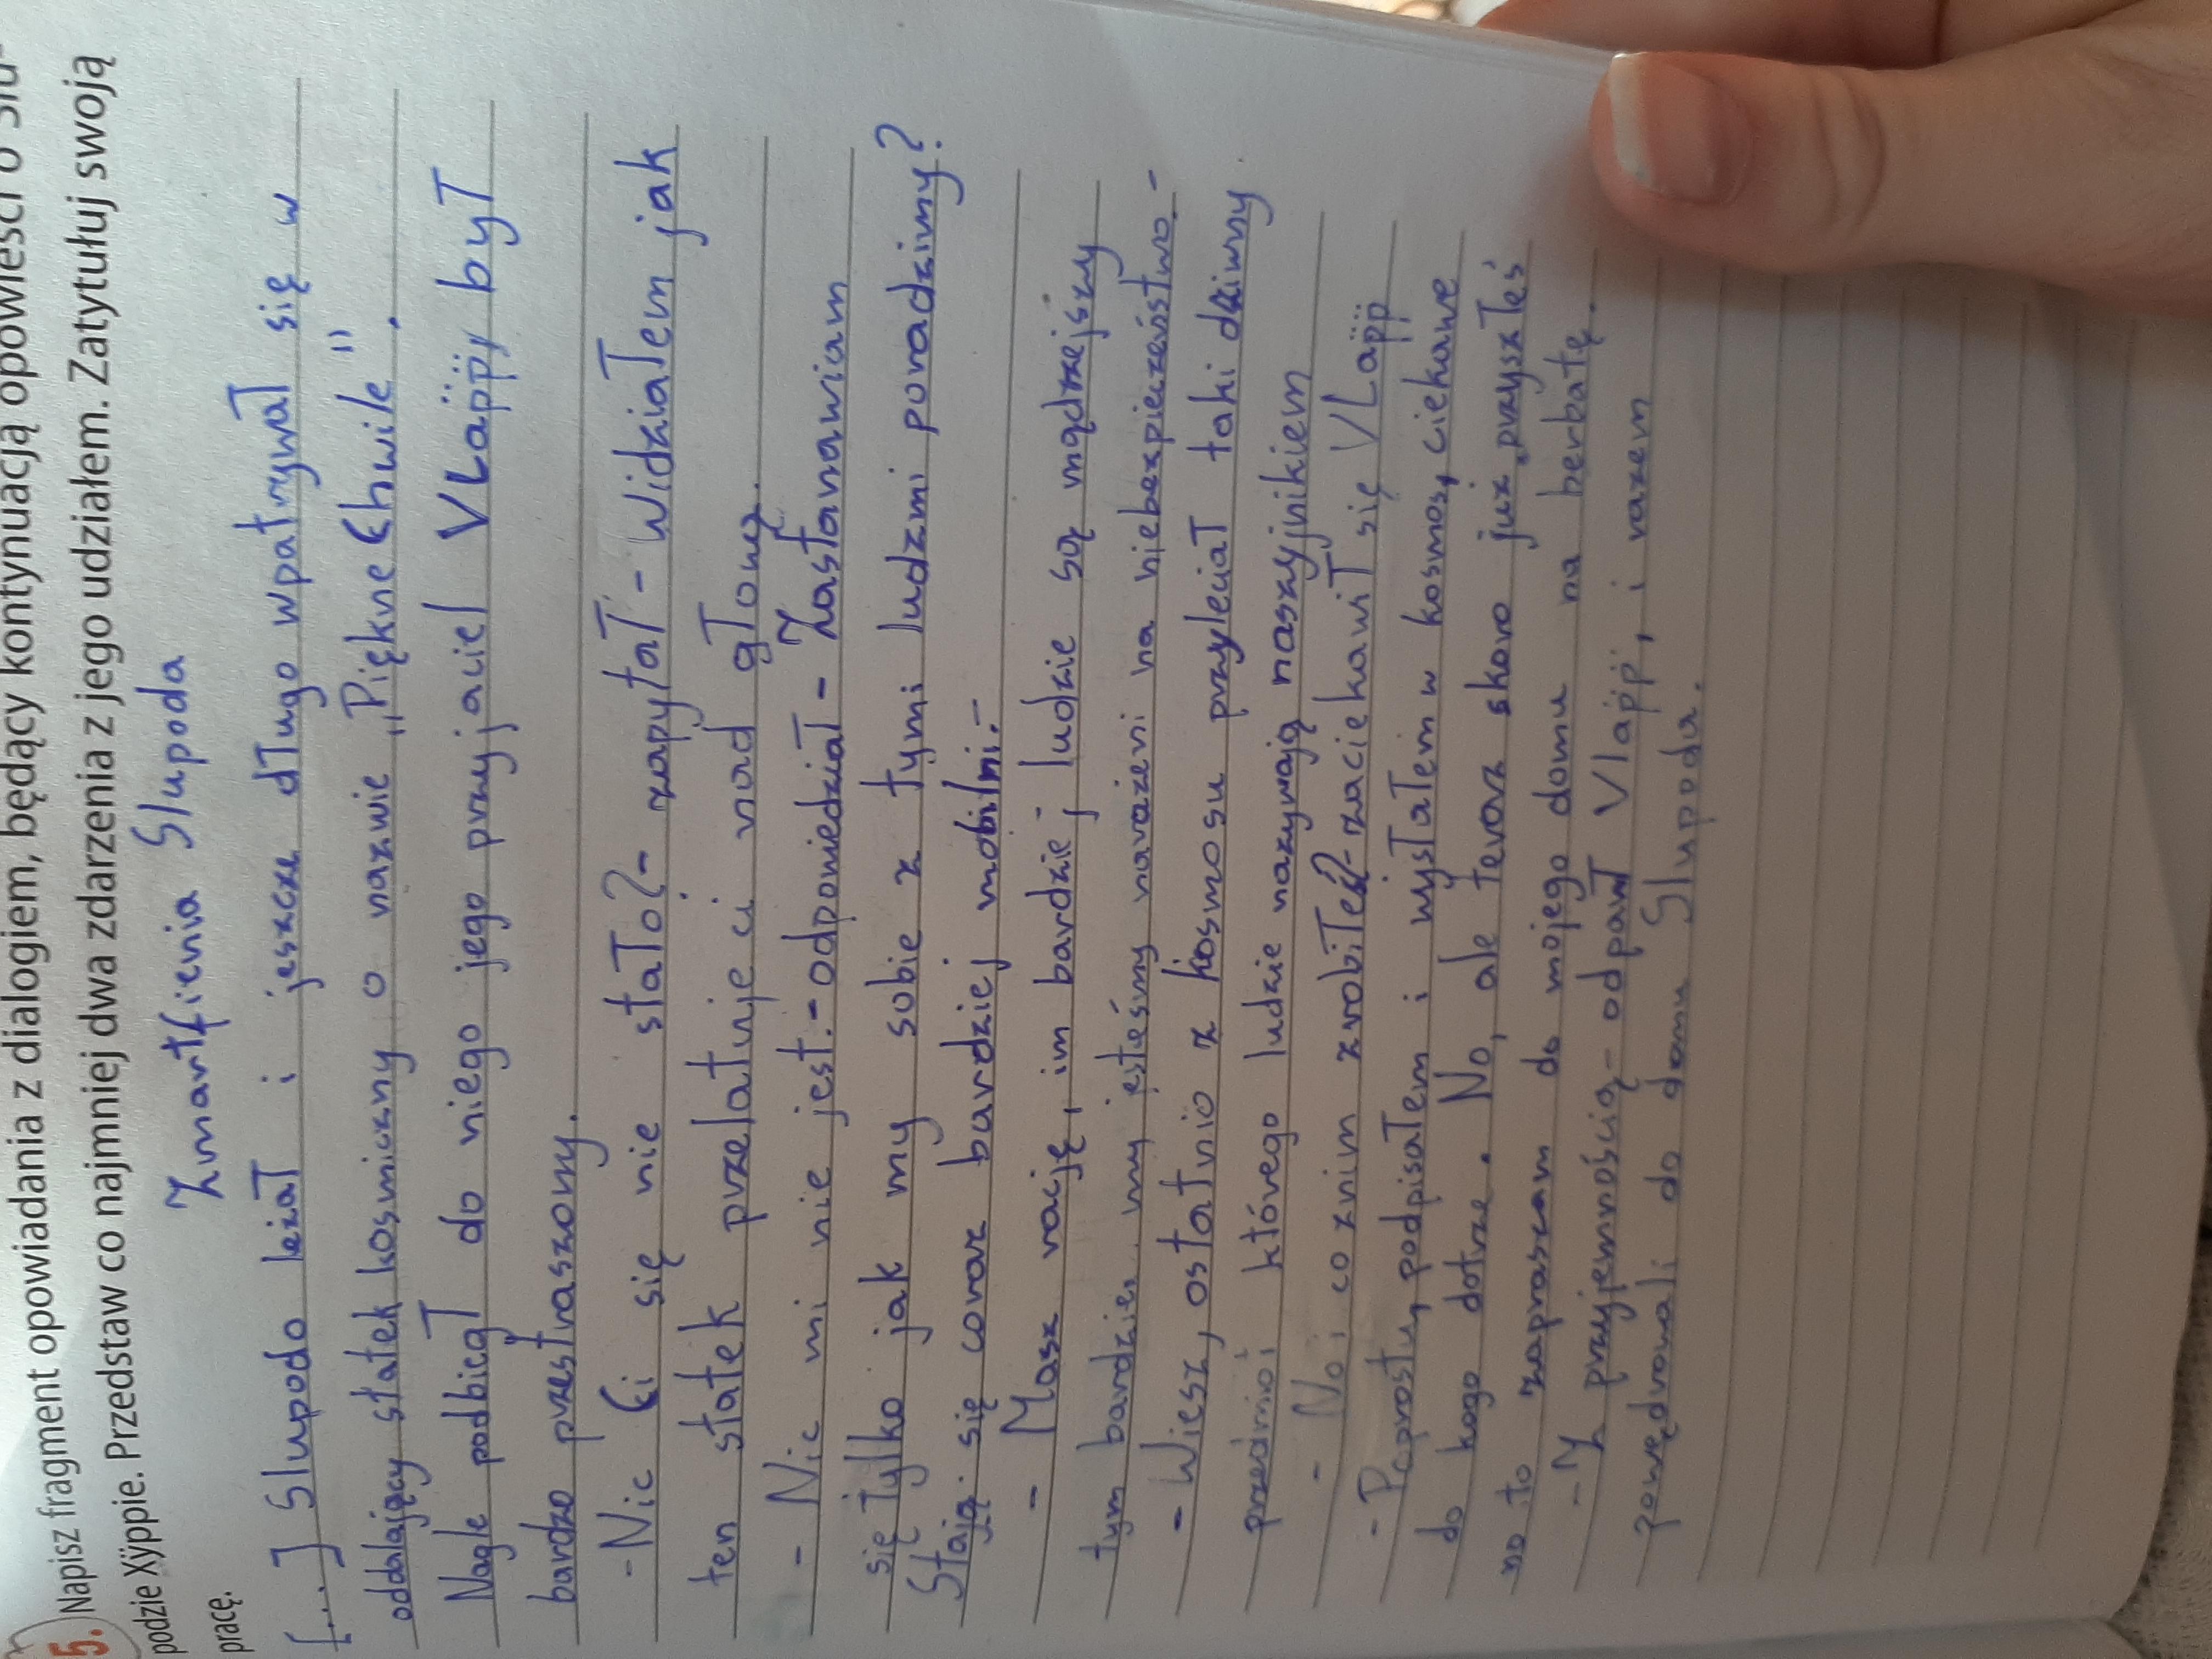 5. Napisz fragment opowiadania z dialogiem, będący kontynuacją opowieści o Slu-
podzie Xÿppie. Przedstaw co najmniej dwa zdarzenia z jego udziałem. Zatytułuj swoją
pracę.
Zmartfienia Slupoda
[...] Slupodo leżał i jeszcze długo wpatrywał się w
oddalający statek kosmiczny o nazwie „Piękne Chwile".
Nagle podbiegł do niego jego przyjaciel VLäpp̈, był
bardzo przestraszony.
- Nic Ci się nie stało? - zapytał - Widziałem jak
ten statek przelatuje ci nad głową.
- Nic mi nie jest. - odpowiedział - Zastanawiam
się tylko jak my sobie z tymi ludzmi poradzimy?
Stają się coraz bardziej mobilni. -
- Masz rację, im bardziej ludzie są mądrzejszy
tym bardziej my jesteśmy narażeni na niebezpieczeństwo. -
- Wiesz, ostatnio z kosmosu przyleciał taki dziwny
przedmiot którego ludzie nazywają naszyjnikiem
- No i co z nim zrobiłeś? - zaciekawił się VLäpp̈
- Poprostu, podpisałem i wysłałem w kosmos, ciekawe
do kogo dotrze. No, ale teraz skoro już przyszłeś
no to zaprascam do mojego domu na herbatę.
- Z przyjemnością - odparł Vläpp̈, i razem
powędrowali do domu Slupoda.